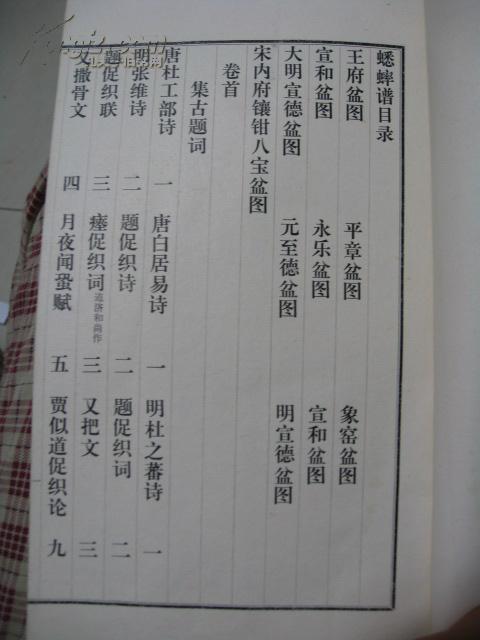 蟋蟀谱目录
王府盆图 平章盆图 象窑盆图
宣和盆图 永乐盆图 宣和盆图
大明宣德盆图 元至德盆图 明宣德盆图
宋内府镶钳八宝盆图
卷首
集古题词
唐杜工部诗 一 唐白居易诗 一 明杜之蕃诗 一
明张维诗 二 题促织诗 二 题促织词 二
题促织联 三 瘗促织词 道济和尚作 三 又把文 三
又撒骨文 四 月夜闻蛩赋 五 贾似道促织论 九